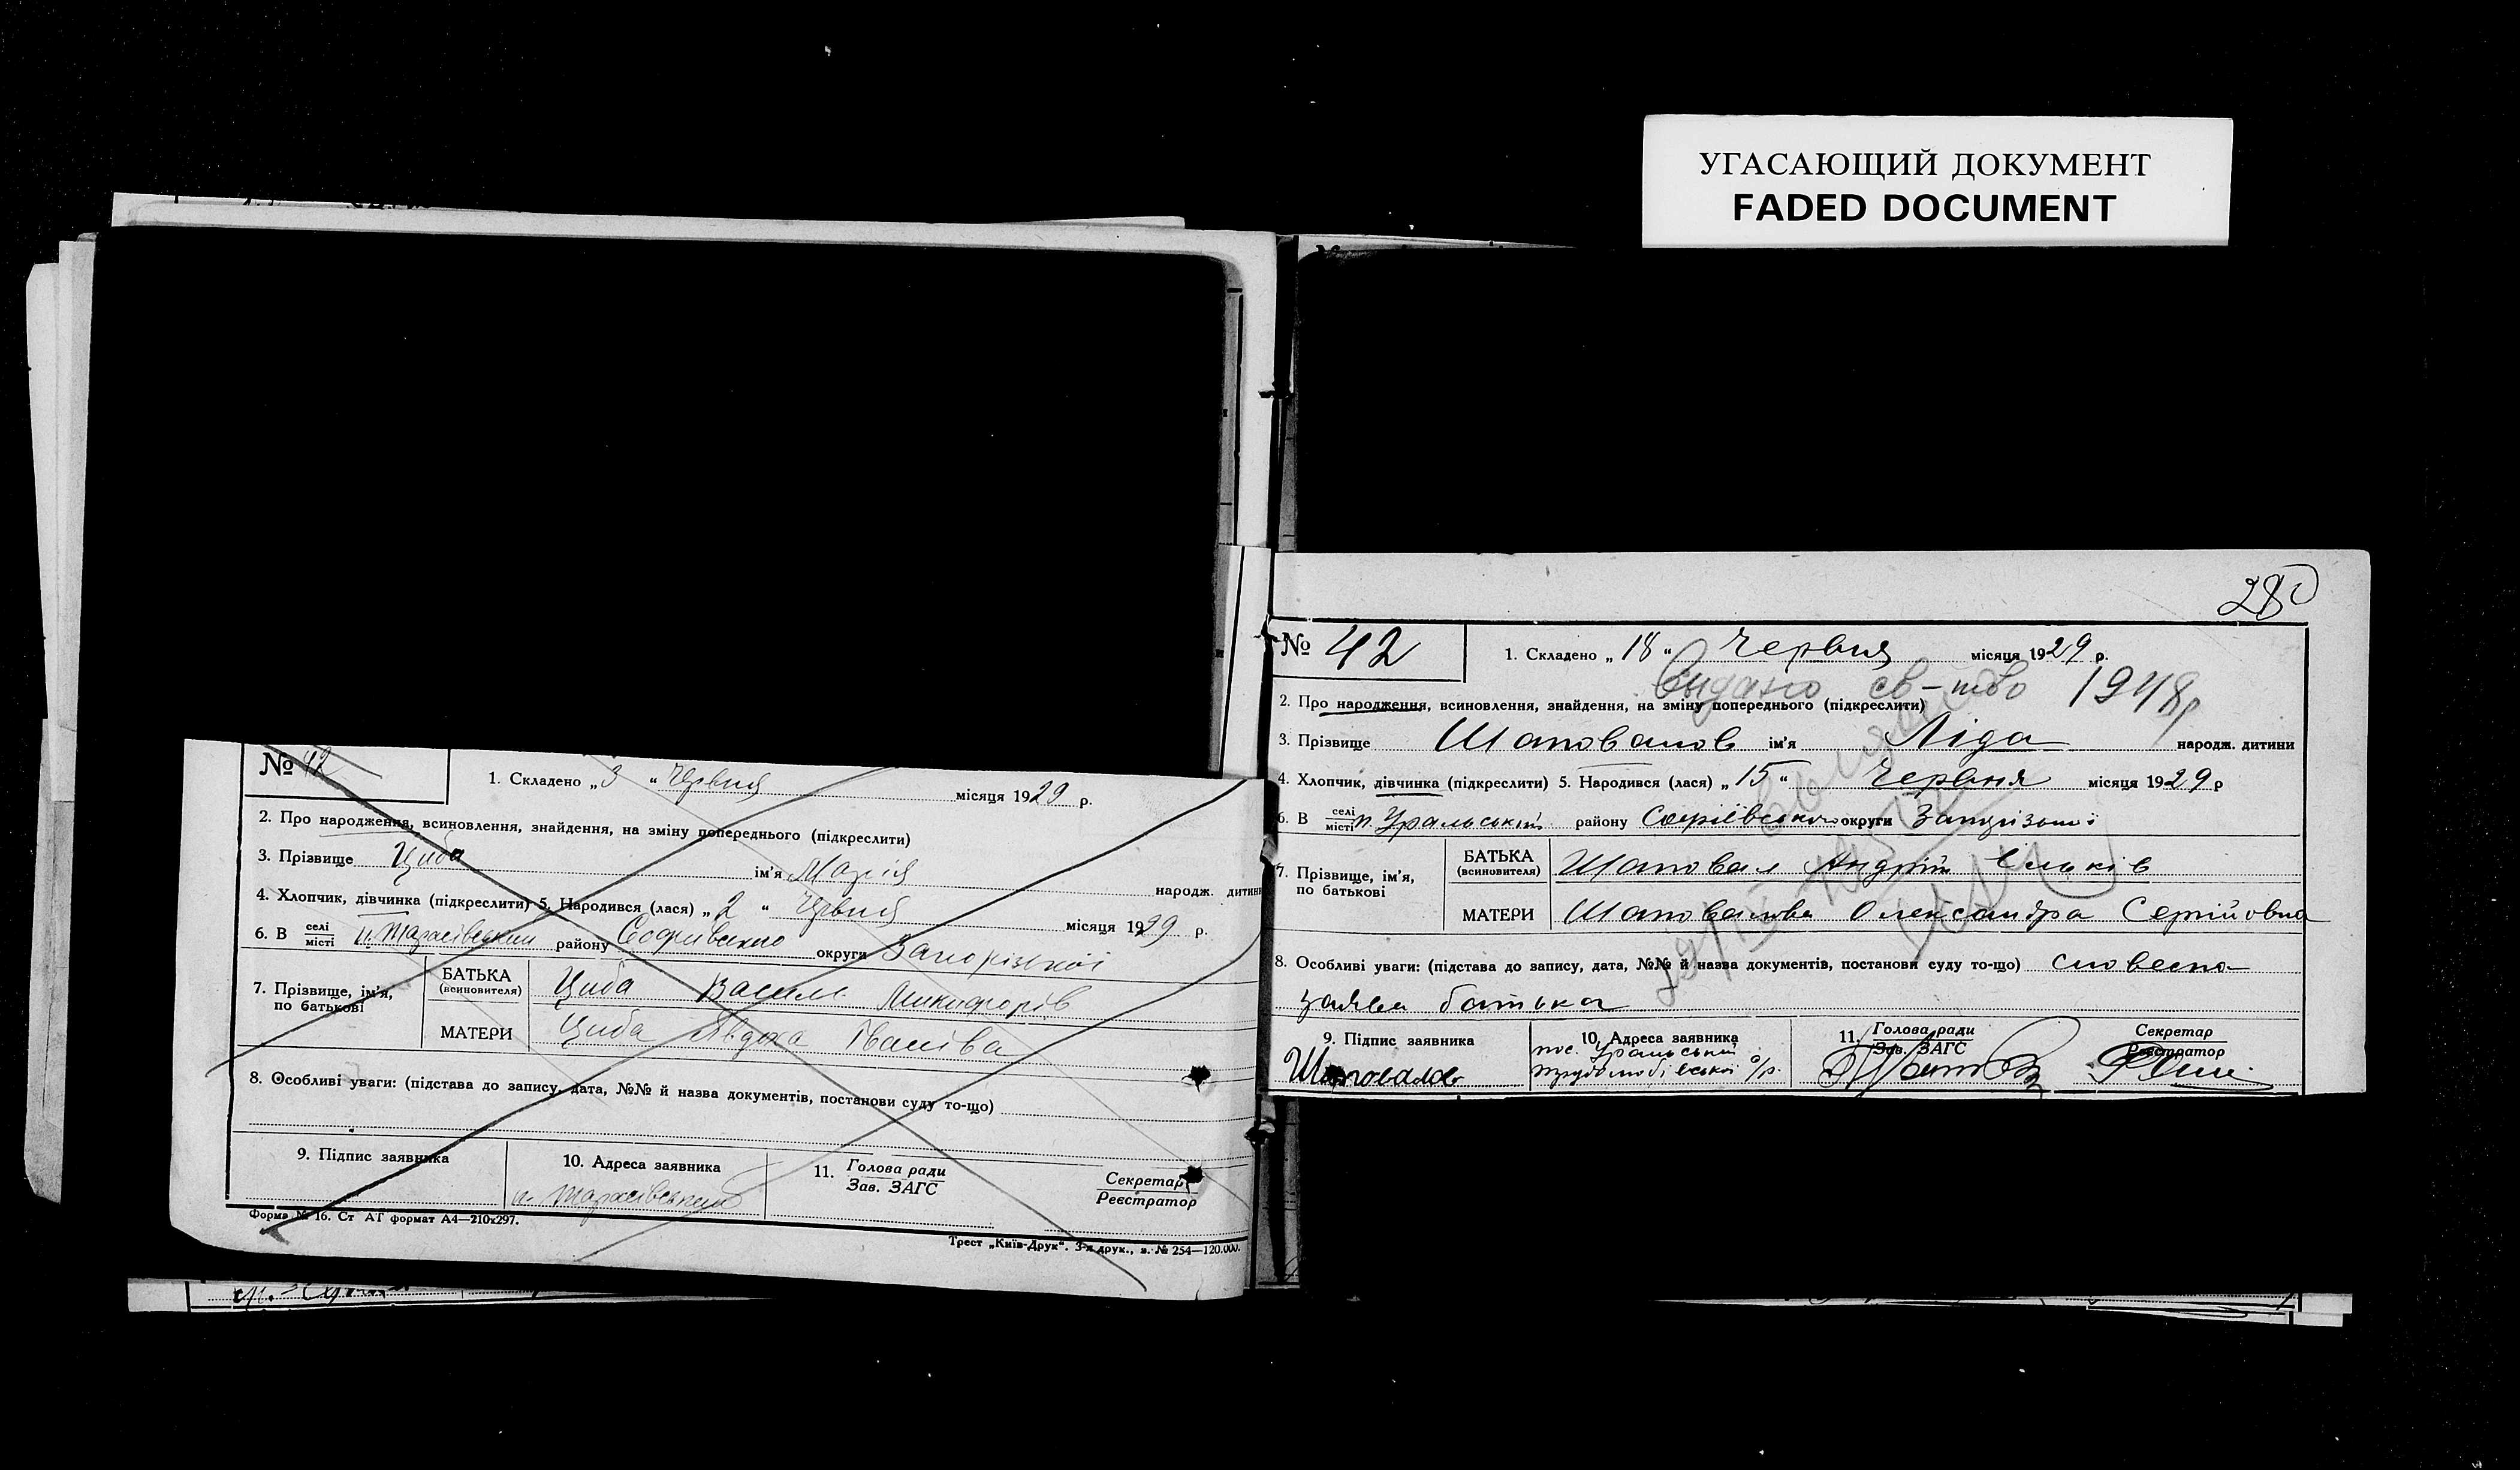 УГАСАЮЩИЙ ДОКУМЕНТ
FADED DOCUMENT
№ 42
1. Складено „3“ Червня місяця 1929 р.
2. Про народження, всиновлення, знайдення, на зміну попереднього (підкреслити)
3. Прізвище Циба ім'я Марія народж. дитини
4. Хлопчик, дівчинка (підкреслити) 5. Народився (лася) „2“ Червня місяця 1929 р.
6. В селі місті п. Тарасівський району Софиївського округи Запорізької
7. Прізвище, ім'я, по батькові
БАТЬКА (всиновителя) Циба Василь Микифорів
МАТЕРИ Циба Явдоха Іванівна
8. Особливі уваги: (підстава до запису, дата, №№ й назва документів, постанови суду то-що)
9. Підпис заявника
10. Адреса заявника
п. Тарасівський
11. Голова ради
Зав. ЗАГС
Секретар
Реєстратор
Форма № 16. Ст АГ формат А4—210х297.
Трест „Київ-Друк“. 3-я друк., з. № 254—120.000.
№ 42
1. Складено „18“ Червня місяця 1929 р.
Выдано св-тво 1948р
2. Про народження, всиновлення, знайдення, на зміну попереднього (підкреслити)
3. Прізвище Шаповалов ім'я Ліда народж. дитини
4. Хлопчик, дівчинка (підкреслити) 5. Народився (лася) „15“ Червня місяця 1929 р
6. В селі місті п. Уральський району Софіївського округи Запорізької
7. Прізвище, ім'я, по батькові
БАТЬКА (всиновителя) Шаповал Андрій
МАТЕРИ Шаповалова Олександра Сергійовна
8. Особливі уваги: (підстава до запису, дата, №№ й назва документів, постанови суду то-що) словесна
заява батька
9. Підпис заявника
Шаповалов
10. Адреса заявника
пос. Уральський
с/р.
11. Голова ради
Зав. ЗАГС
Секретар
Реєстратор